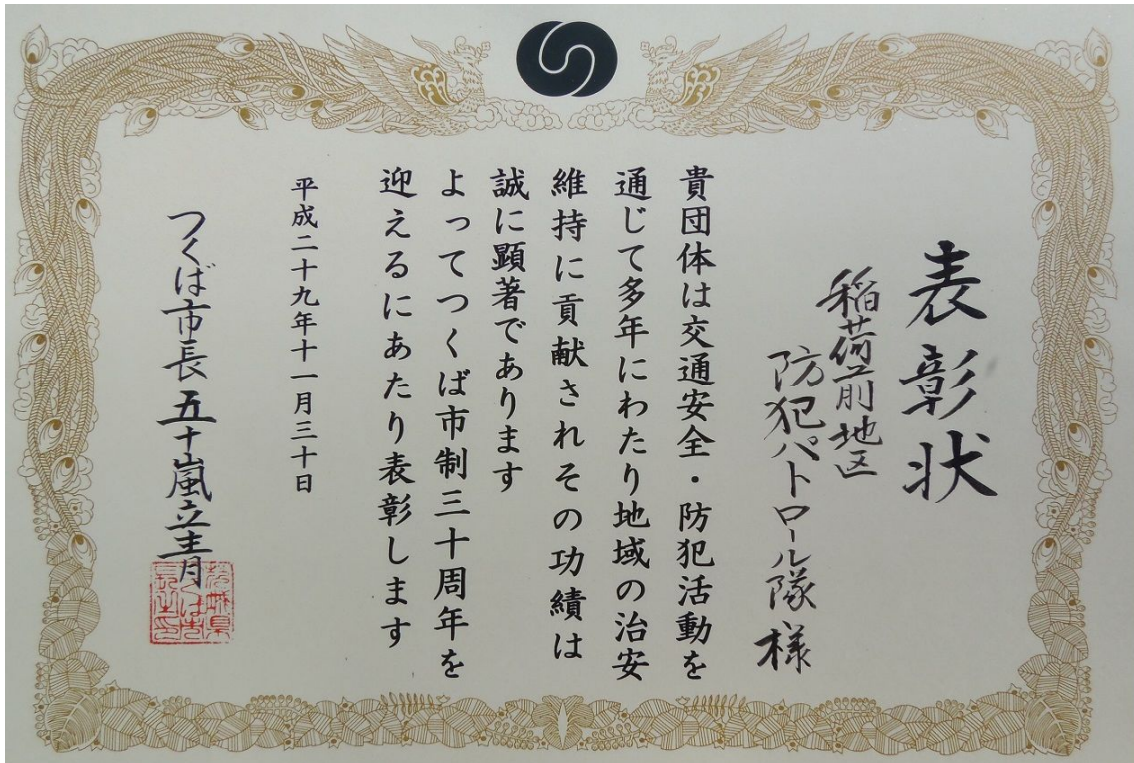 表彰状
稲荷前地区
防犯パトロール隊 様
貴団体は交通安全・防犯活動を
通じて多年にわたり地域の治安
維持に貢献されその功績は
誠に顕著であります
よってつくば市制三十周年を
迎えるにあたり表彰します
平成二十九年十一月三十日
つくば市長 五十嵐立青
茨城県
つくば市
長之印